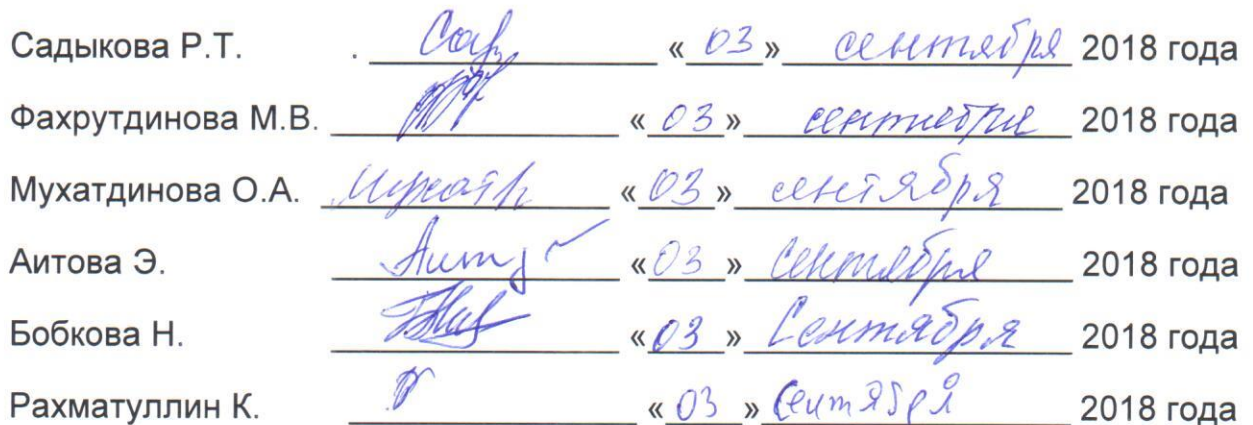 Садыкова Р.Т. « 03 » сентября 2018 года
Фахрутдинова М.В. « 03 » сентября 2018 года
Мухатдинова О.А. « 03 » сентября 2018 года
Аитова Э. « 03 » сентября 2018 года
Бобкова Н. « 03 » Сентября 2018 года
Рахматуллин К. « 03 » сентября 2018 года